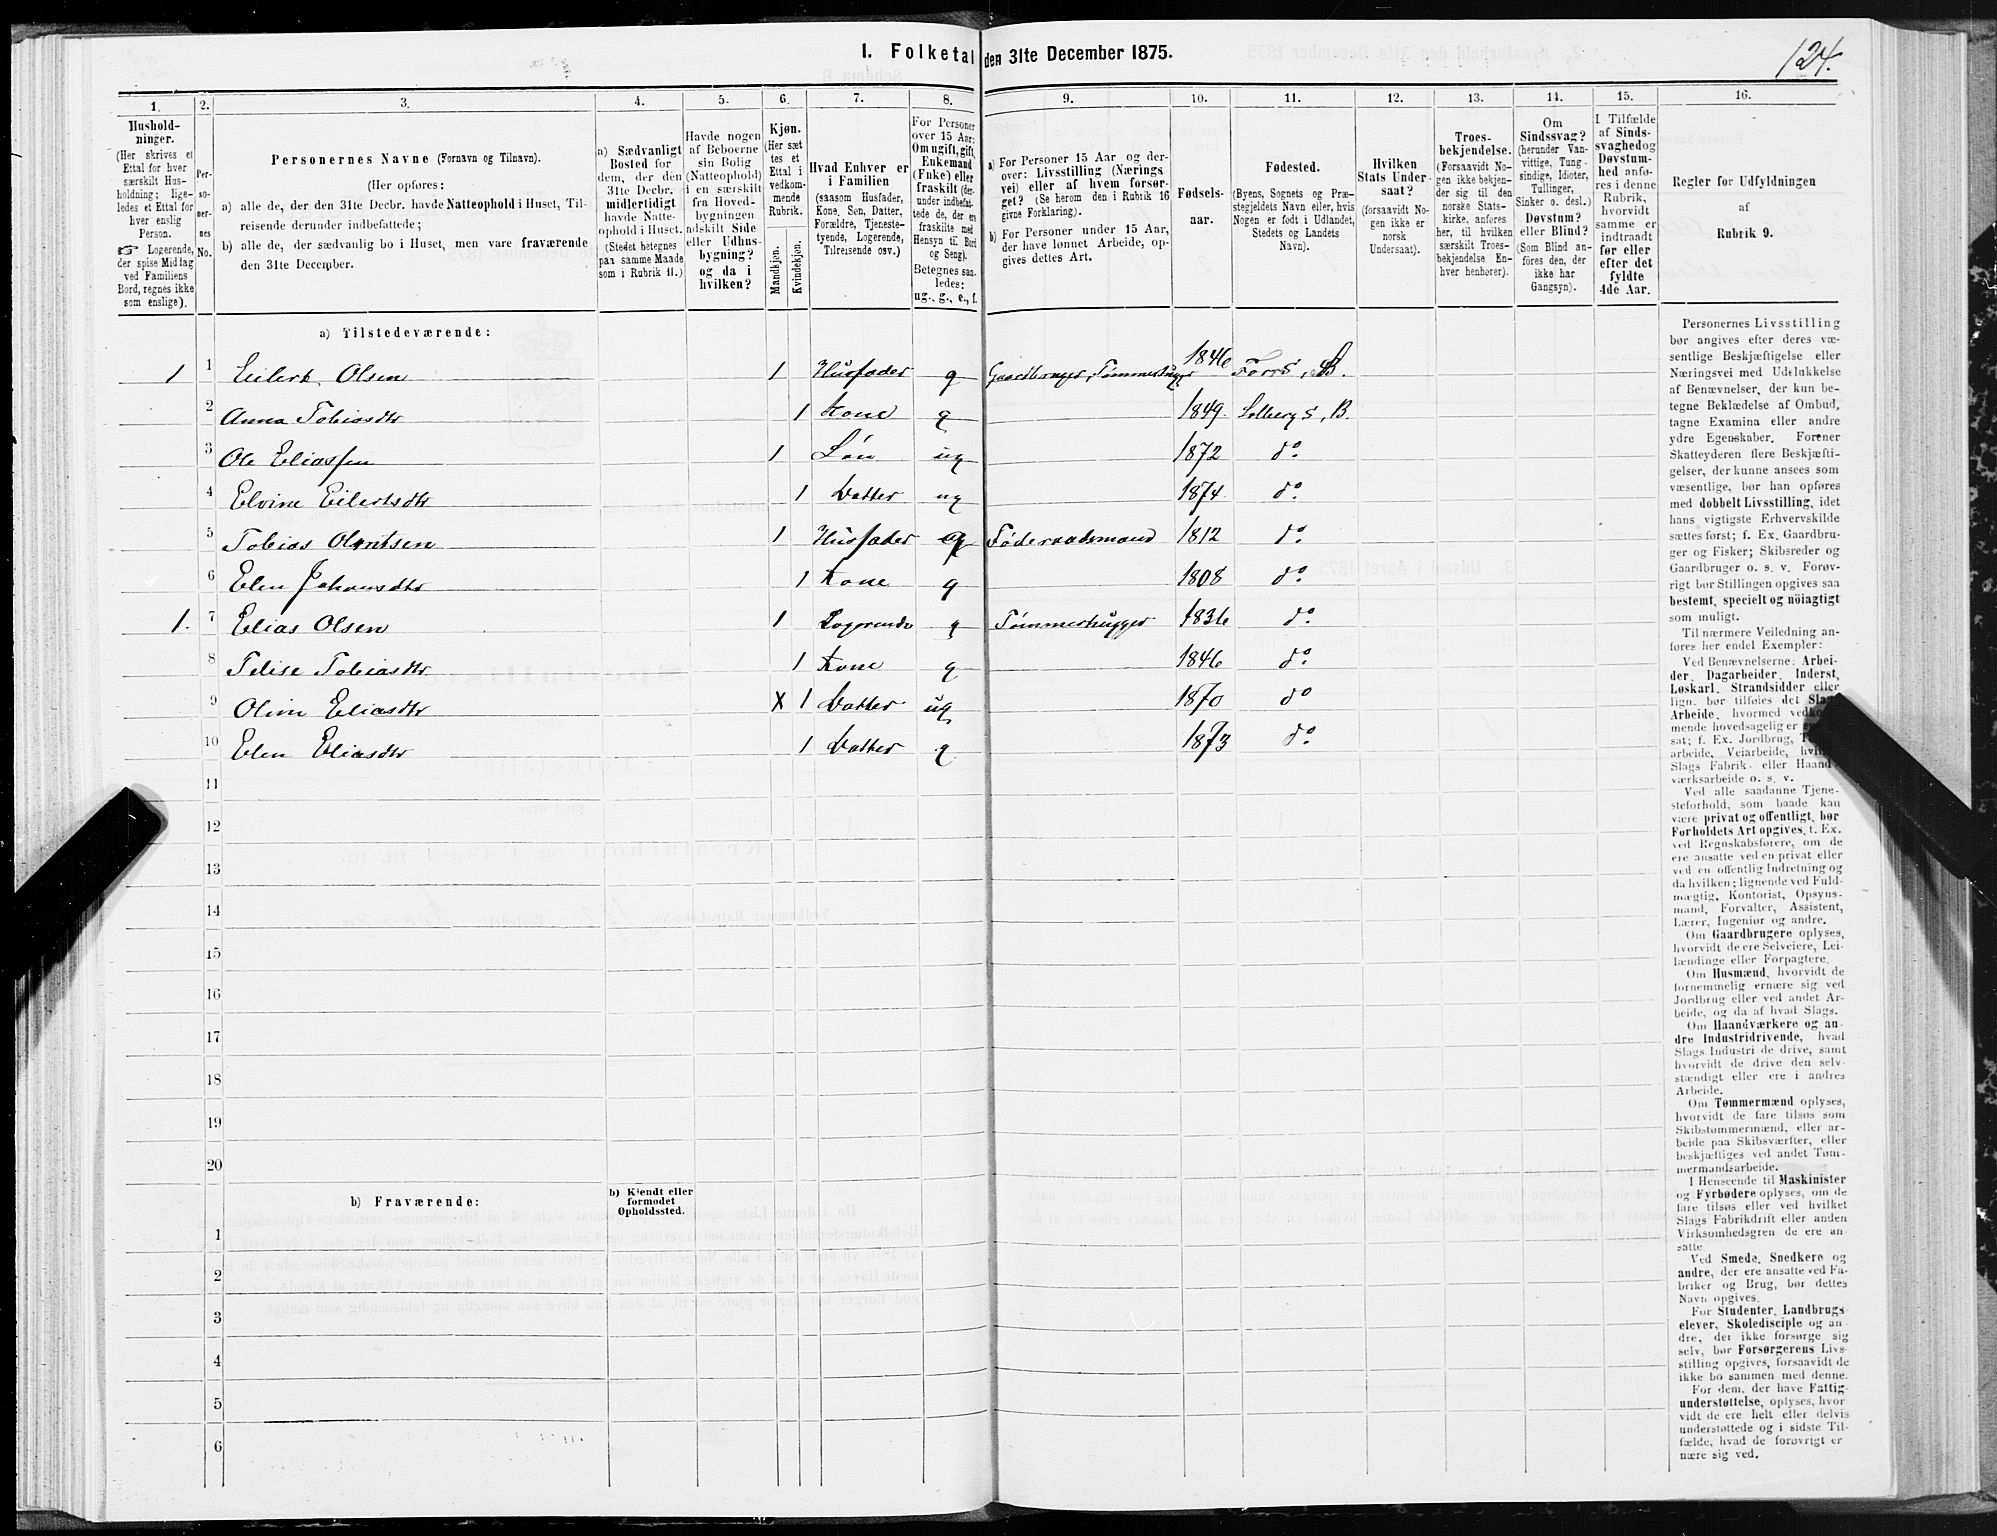 I. Folketal den 31te December 1875.
124.
1. 2. 3. 4. 5. 6. 7. 8. 9. 10. 11. 12. 13. 14. 15. 16.
Hushold-
ninger.
(Her skrives et
Ettal for hver
særskilt Hus-
holdning; lige-
ledes et Ettal for
hver enslig
Person.
☞ Logerende,
der spise Middag
ved Familiens
Bord, regnes ikke
som enslige).
Per-
so-
ner-
nes
No.
Personernes Navne (Fornavn og Tilnavn).
(Her opføres:
a) alle de, der den 31te Decbr. havde Natteophold i Huset, Til-
reisende derunder indbefattede;
b) alle de, der sædvanlig bo i Huset, men vare fraværende
den 31te December.
a) Sædvanligt
Bosted for
dem, der den
31te Decbr.
midlertidigt
havde Natte-
ophold i Huset.
(Stedet betegnes
paa samme Maade
som i Rubrik 11.)
Havde nogen
af Beboerne
sin Bolig
(Natteophold)
i en særskilt
fra Hoved-
bygningen
adskilt Side
eller Udhus-
bygning?
og da i
hvilken?
Kjøn.
(Her sæt
tes et
Ettal i
vedkom-
mende
Rubrik.
Mandkjøn.
Kvindekjøn.
Hvad Enhver er
i Familien
(saasom Husfader,
Kone, Søn, Datter,
Forældre, Tjeneste-
tyende, Logerende,
Tilreisende osv.)
For Personer
over 15 Aar:
Om ugift, gift,
Enkemand
(Enke) eller
fraskilt (der-
under indbefat-
tede de, der ere
fraskilte med
Hensyn til Bord
og Seng).
Betegnes saa-
ledes:
ug., g., e., f.
a) For Personer 15 Aar og der-
over: Livsstilling (Nærings
vei) eller af hvem forsør-
get? (Se herom den i Rubrik 16
givne Forklaring).
b) For Personer under 15 Aar,
der have lønnet Arbeide, op-
gives dettes Art.
Fødsels-
aar.
Fødested.
(Byens, Sognets og Præ-
stegjeldets Navn eller, hvis
Nogen er født i Udlandet,
Stedets og Landets
Navn).
Hvilken
Stats Under-
saat?
(forsaavidt No-
gen ikke er
norsk
Undersaat).
Troes-
bekjendelse.
(Forsaavidt No-
gen ikke bekjen-
der sig til den
norske Stats-
kirke, anføres
her, til hvilken
særskilt Troes-
bekjendelse En-
hver henhører).
Om
Sindssvag?
(herunder Van-
vittige, Tung-
sindige, Idioter,
Tullinger,
Sinker o. desl.)
Døvstum?
eller Blind?
(Som Blind an-
føres den, der
ikke har
Gangsyn).
I Tilfælde
af Sinds-
svaghed og
Døvstum-
hed anfø-
res i denne
Rubrik,
hvorvidt
samme er
indtraadt
før eller
efter det
fyldte
4de Aar.
Regler for Udfyldningen
af
Rubrik 9.
a) Tilstedeværende:
1 1 Eilert Olsen 1 Husfader g Gaardbruger, Tømmerhugger 1846 Fors S, B.
2 Anna Tobiasdtr 1 Kone g 1849 Solberg S, B.
3 Ole Eliassen 1 Søn ug 1872 do
4 Elvine Eilertsdtr 1 Datter ug 1874 do
5 Tobias Olontsen 1 Husfader g Føderaadsmand 1812 do
6 Elen Johansdtr 1 Kone g 1808 do
1. 7 Elias Olsen 1 Logerende g Tømmerhugger 1836 do
8 Telise Tobiasdtr 1 Kone g 1846 do
9 Oline Eliasdtr X 1 Datter ug 1870 do
10 Elen Eliasdtr 1 Datter g 1873 do
11
12
13
14
15
16
17
18
19
20
b) Fraværende:
b) Kjendt eller
formodet
Opholdssted.
1
2
3
4
5
6
Personernes Livsstilling
bør angives efter deres væ-
sentlige Beskjæftigelse eller
Næringsvei med Udelukkelse
af Benævnelser, der kun be-
tegne Beklædelse af Ombud,
tagne Examina eller andre
ydre Egenskaber. Forener
Skatteyderen flere Beskjæfti-
gelser, der kunne ansees som
væsentlige, bør han opføres
med dobbelt Livsstilling, idet
hans vigtigste Erhvervskilde
sættes først; f. Ex. Gaardbru-
ger og Fisker; Skibsreder og
Gaardbruger o. s. v. Forøv-
rigt bør Stillingen opgives saa
bestemt, specielt og nøiagtigt
som muligt.
Til nærmere Veiledning an-
føres her endel Exempler:
Ved Benævnelserne: Arbei-
der, Dagarbeider, Inderst,
Løskarl, Strandsidder eller
lign. bør tilføies det Slags
Arbeide, hvormed vedkom-
mende hovedsagelig er
sat; f. Ex. Jordbrug,
arbeide, Veiarbeide,
Slags Fabrik- eller Haand-
værksarbeide o. s. v.
Ved alle saadanne Tjene-
steforhold, som baade kan
være privat og offentligt, bør
Forholdets Art opgives, t. Ex.
ved Regnskabsførere, om de
ere ansatte ved en privat eller
ved en offentlig Indretning og
da hvilken; lignende ved Fuld-
mægtig, Kontorist, Opsyns-
mand, Forvalter, Assistent,
Lærer, Ingeniør og andre.
Om Gaardbrugere oplyses,
hvorvidt de ere Selveiere, Lei-
lændinge eller Forpagtere.
Om Husmænd, hvorvidt de
fornemmelig ernære sig ved
Jordbrug eller ved andet Ar-
beide, og da af hvad Slags.
Om Haandværkere og an-
dre Industridrivende, hvad
Slags Industri de drive, samt
hvorvidt de drive den selv-
stændigt eller ere i andres
Arbeide.
Om Tømmermænd oplyses,
hvorvidt de fare tilsøs som
Skibstømmermænd, eller ar-
beide paa Skibsværfter, eller
beskjæftiges ved andet Tøm-
mermandsarbeide.
I Henseende til Maskinister
og Fyrbødere oplyses, om de
fare tilsøs eller ved hvilket
Slags Fabrikdrift eller anden
Virksomhedsgren de ere an-
satte.
Ved Smede, Snedkere og
andre, der ere ansatte ved Fa-
briker og Brug, bør dettes
Navn opgives.
For Studenter, Landbrugs-
elever, Skoledisciple og an-
dre, der ikke forsørge sig
selv, bør Forsørgerens Livs-
stilling opgives, forsaavidt de
ikke bo sammen med denne.
For dem, der have Fattig-
understøttelse, oplyses, hvor
vidt de ere helt eller delvis
understøttede og i sidste Til-
fælde, hvad de forøvrigt er
nære sig ved.